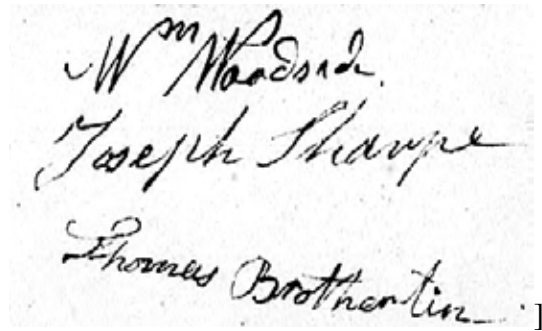 Wm Woodside
Joseph Sharpe
Thomas Brotherton
]